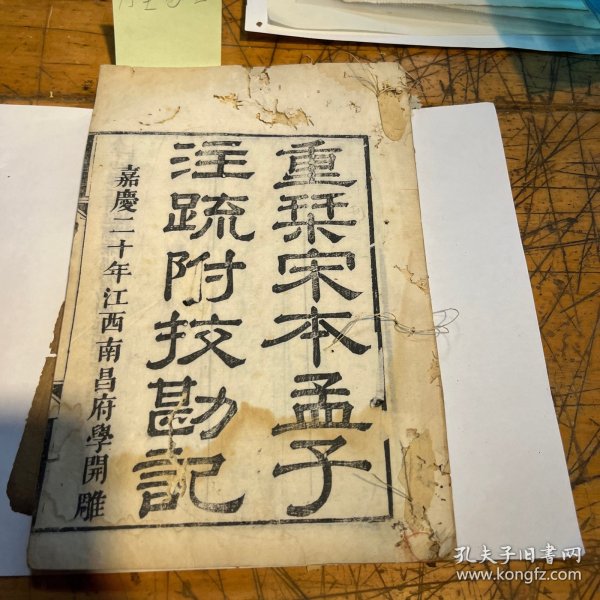 重栞宋本孟子
注疏附挍勘記
嘉慶二十年江西南昌府學開雕
孔夫子旧书网
www.kongfz.com